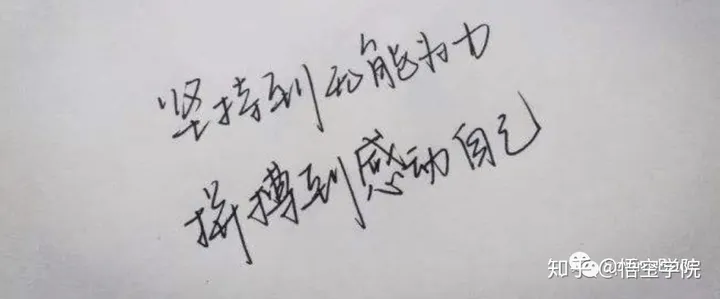 坚持到无能为力
拼搏到感动自己
知乎 @悟空学院